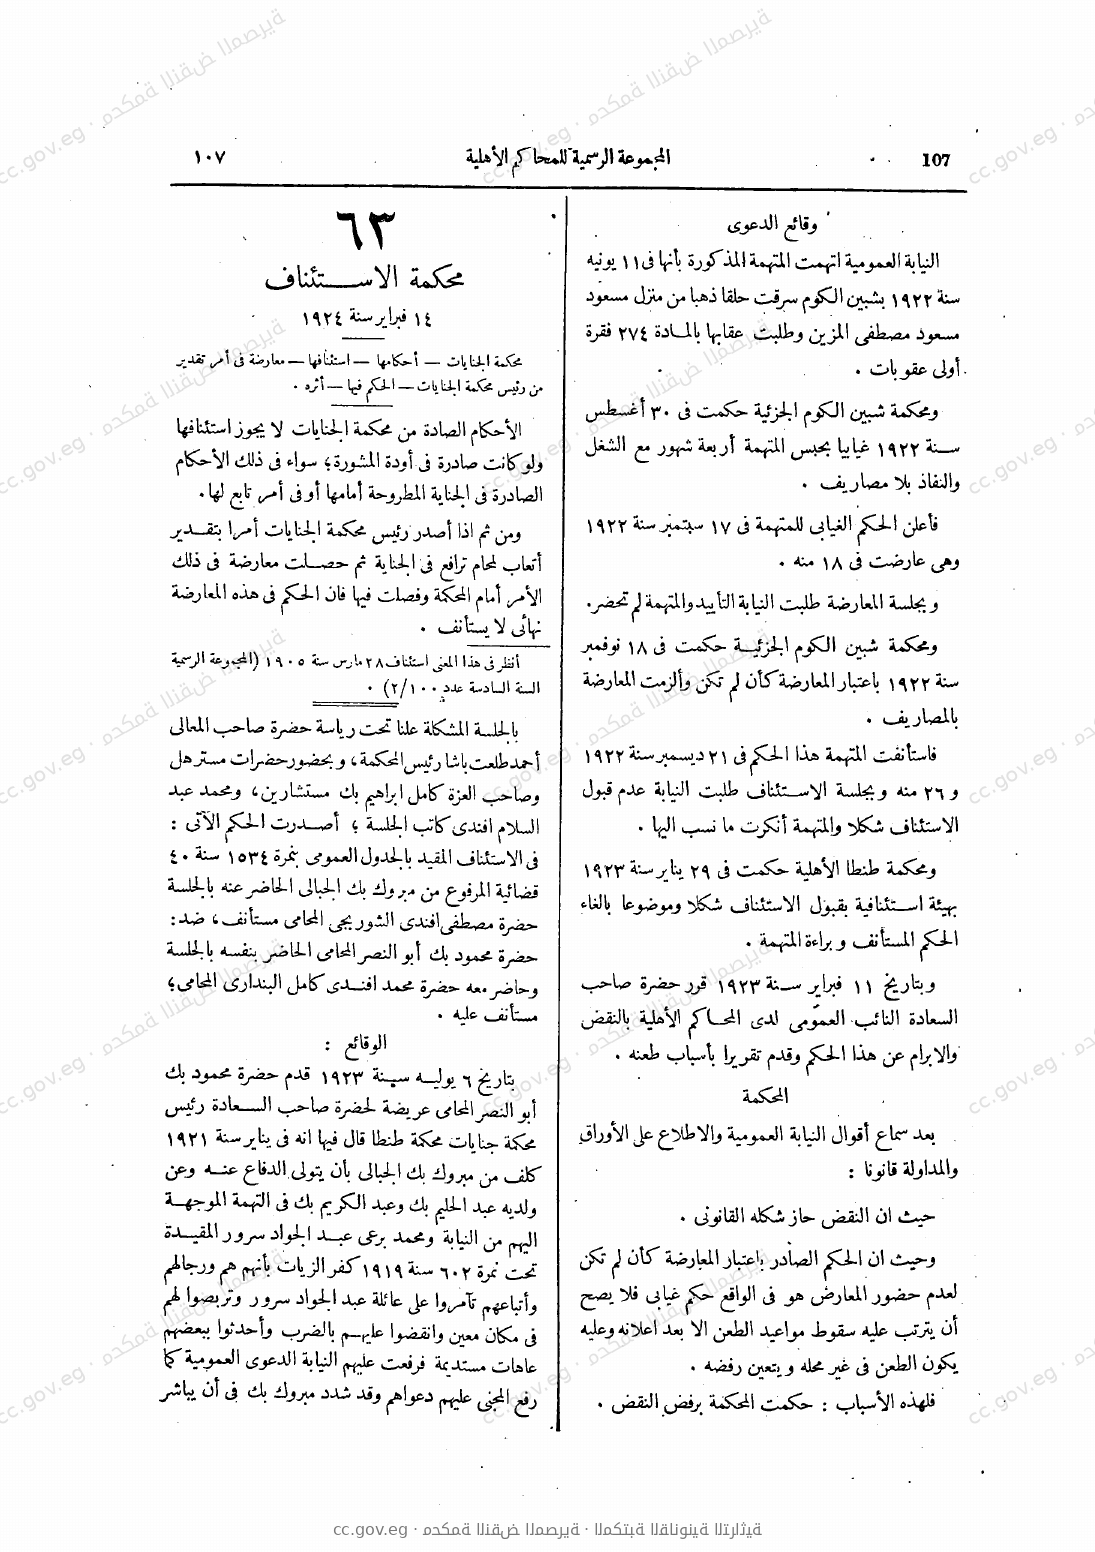 107
المجموعة الرسمية للمحاكم الأهلية
١٠٧
وقائع الدعوى
النيابة العمومية اتهمت المتهمة المذكورة بأنها فى ١١ يونيه
سنة ١٩٢٢ بشبين الكوم سرقت حلقا ذهبا من منزل مسعود
مسعود مصطفى المزين وطلبت عقابها بالمادة ٢٧٤ فقرة
أولى عقوبات .
ومحكمة شبين الكوم الجزئية حكمت فى ٣٠ أغسطس
سنة ١٩٢٢ غيابيا بحبس المتهمة أربعة شهور مع الشغل
والنفاذ بلا مصاريف .
فأعلن الحكم الغيابى للمتهمة فى ١٧ سبتمبر سنة ١٩٢٢
وهى عارضت فى ١٨ منه .
وبجلسة المعارضة طلبت النيابة التأييد والمتهمة لم تحضر.
ومحكمة شبين الكوم الجزئية حكمت فى ١٨ نوفمبر
سنة ١٩٢٢ باعتبار المعارضة كأن لم تكن وألزمت المعارضة
بالمصاريف .
فاستأنفت المتهمة هذا الحكم فى ٢١ ديسمبر سنة ١٩٢٢
و ٢٦ منه وبجلسة الاستئناف طلبت النيابة عدم قبول
الاستئناف شكلا والمتهمة أنكرت ما نسب اليها .
ومحكمة طنطا الأهلية حكمت فى ٢٩ يناير سنة ١٩٢٣
بهيئة استئنافية بقبول الاستئناف شكلا وموضوعا بالغاء
الحكم المستأنف وبراءة المتهمة .
وبتاريخ ١١ فبراير سنة ١٩٢٣ قرر حضرة صاحب
السعادة النائب العمومى لدى المحاكم الأهلية بالنقض
والابرام عن هذا الحكم وقدم تقريرا بأسباب طعنه .
المحكمة
بعد سماع أقوال النيابة العمومية والاطلاع على الأوراق
والمداولة قانونا :
حيث ان النقض حاز شكله القانونى .
وحيث ان الحكم الصادر باعتبار المعارضة كأن لم تكن
لعدم حضور المعارض هو فى الواقع حكم غيابى فلا يصح
أن يترتب عليه سقوط مواعيد الطعن الا بعد اعلانه وعليه
يكون الطعن فى غير محله ويتعين رفضه .
فلهذه الأسباب : حكمت المحكمة برفض النقض .
٦٣
محكمة الاستئناف
١٤ فبراير سنة ١٩٢٤
محكمة الجنايات — أحكامها — استئنافها — معارضة فى أمر تقدير
من رئيس محكمة الجنايات — الحكم فيها — أثره .
الأحكام الصادة من محكمة الجنايات لا يجوز استئنافها
ولو كانت صادرة فى أودة المشورة؛ سواء فى ذلك الأحكام
الصادرة فى الجناية المطروحة أمامها أو فى أمر تابع لها.
ومن ثم اذا أصدر رئيس محكمة الجنايات أمرا بتقدير
أتعاب لمحام ترافع فى الجناية ثم حصلت معارضة فى ذلك
الأمر أمام المحكمة وفصلت فيها فان الحكم فى هذه المعارضة
نهائى لا يستأنف .
أنظر فى هذا المعنى استئناف ٢٨ مارس سنة ١٩٠٥ (المجموعة الرسمية
السنة السادسة عدد ٢/١٠٠) .
بالجلسة المشكلة علنا تحت رياسة حضرة صاحب المعالى
أحمد طلعت باشا رئيس المحكمة، وبحضور حضرات مستر هل
وصاحب العزة كامل ابراهيم بك مستشارين، ومحمد عبد
السلام افندى كاتب الجلسة ؛ أصدرت الحكم الآتى :
فى الاستئناف المقيد بالجدول العمومى بنمرة ١٥٣٤ سنة ٤٠
قضائية المرفوع من مبروك بك الجبالى الحاضر عنه بالجلسة
حضرة مصطفى افندى الشوربجى المحامى مستأنف، ضد:
حضرة محمود بك أبو النصر المحامى الحاضر بنفسه بالجلسة
وحاضر معه حضرة محمد افندى كامل البندارى المحامى؛
مستأنف عليه .
الوقائع :
بتاريخ ٦ يوليه سنة ١٩٢٣ قدم حضرة محمود بك
أبو النصر المحامى عريضة لحضرة صاحب السعادة رئيس
محكمة جنايات محكمة طنطا قال فيها انه فى يناير سنة ١٩٢١
كلف من مبروك بك الجبالى بأن يتولى الدفاع عنه وعن
ولديه عبد الحليم بك وعبد الكريم بك فى التهمة الموجهة
اليهم من النيابة ومحمد برعى عبد الجواد سرور المقيدة
تحت نمرة ٦٠٢ سنة ١٩١٩ كفر الزيات بأنهم هم ورجالهم
وأتباعهم تآمروا على عائلة عبد الجواد سرور وتربصوا لهم
فى مكان معين وانقضوا عليهم بالضرب وأحدثوا ببعضهم
عاهات مستديمة فرفعت عليهم النيابة الدعوى العمومية كما
رفع المجنى عليهم دعواهم وقد شدد مبروك بك فى أن يباشر
cc.gov.eg · محكمة النقض المصرية · المكتبة القانونية التراثية